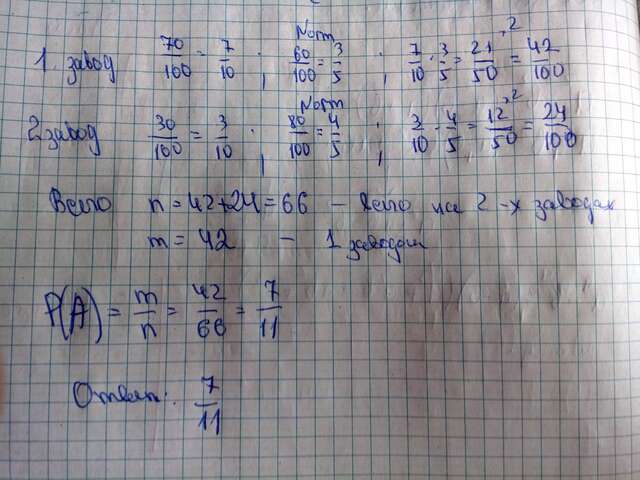 1. завод 70/100 = 7/10 ; Norm 60/100 = 3/5 ; 7/10 · 3/5 = 21/50 ·2 = 42/100
2 завод 30/100 = 3/10 ; Norm 80/100 = 4/5 ; 3/10 · 4/5 = 12/50 ·2 = 24/100
Всего n = 42+24 = 66 – Всего на 2-х заводах
m = 42 – 1 заводом
P(A) = m/n = 42/66 = 7/11
Ответ: 7/11